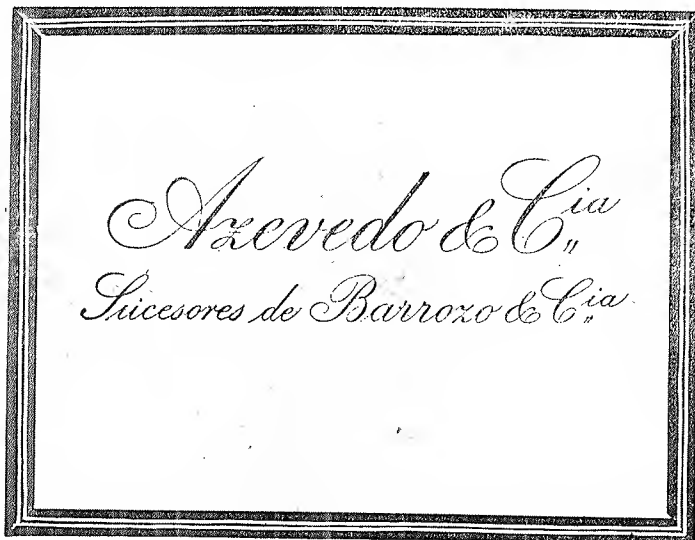 Azevedo & Cia
Sucesores de Barrozo & Cia